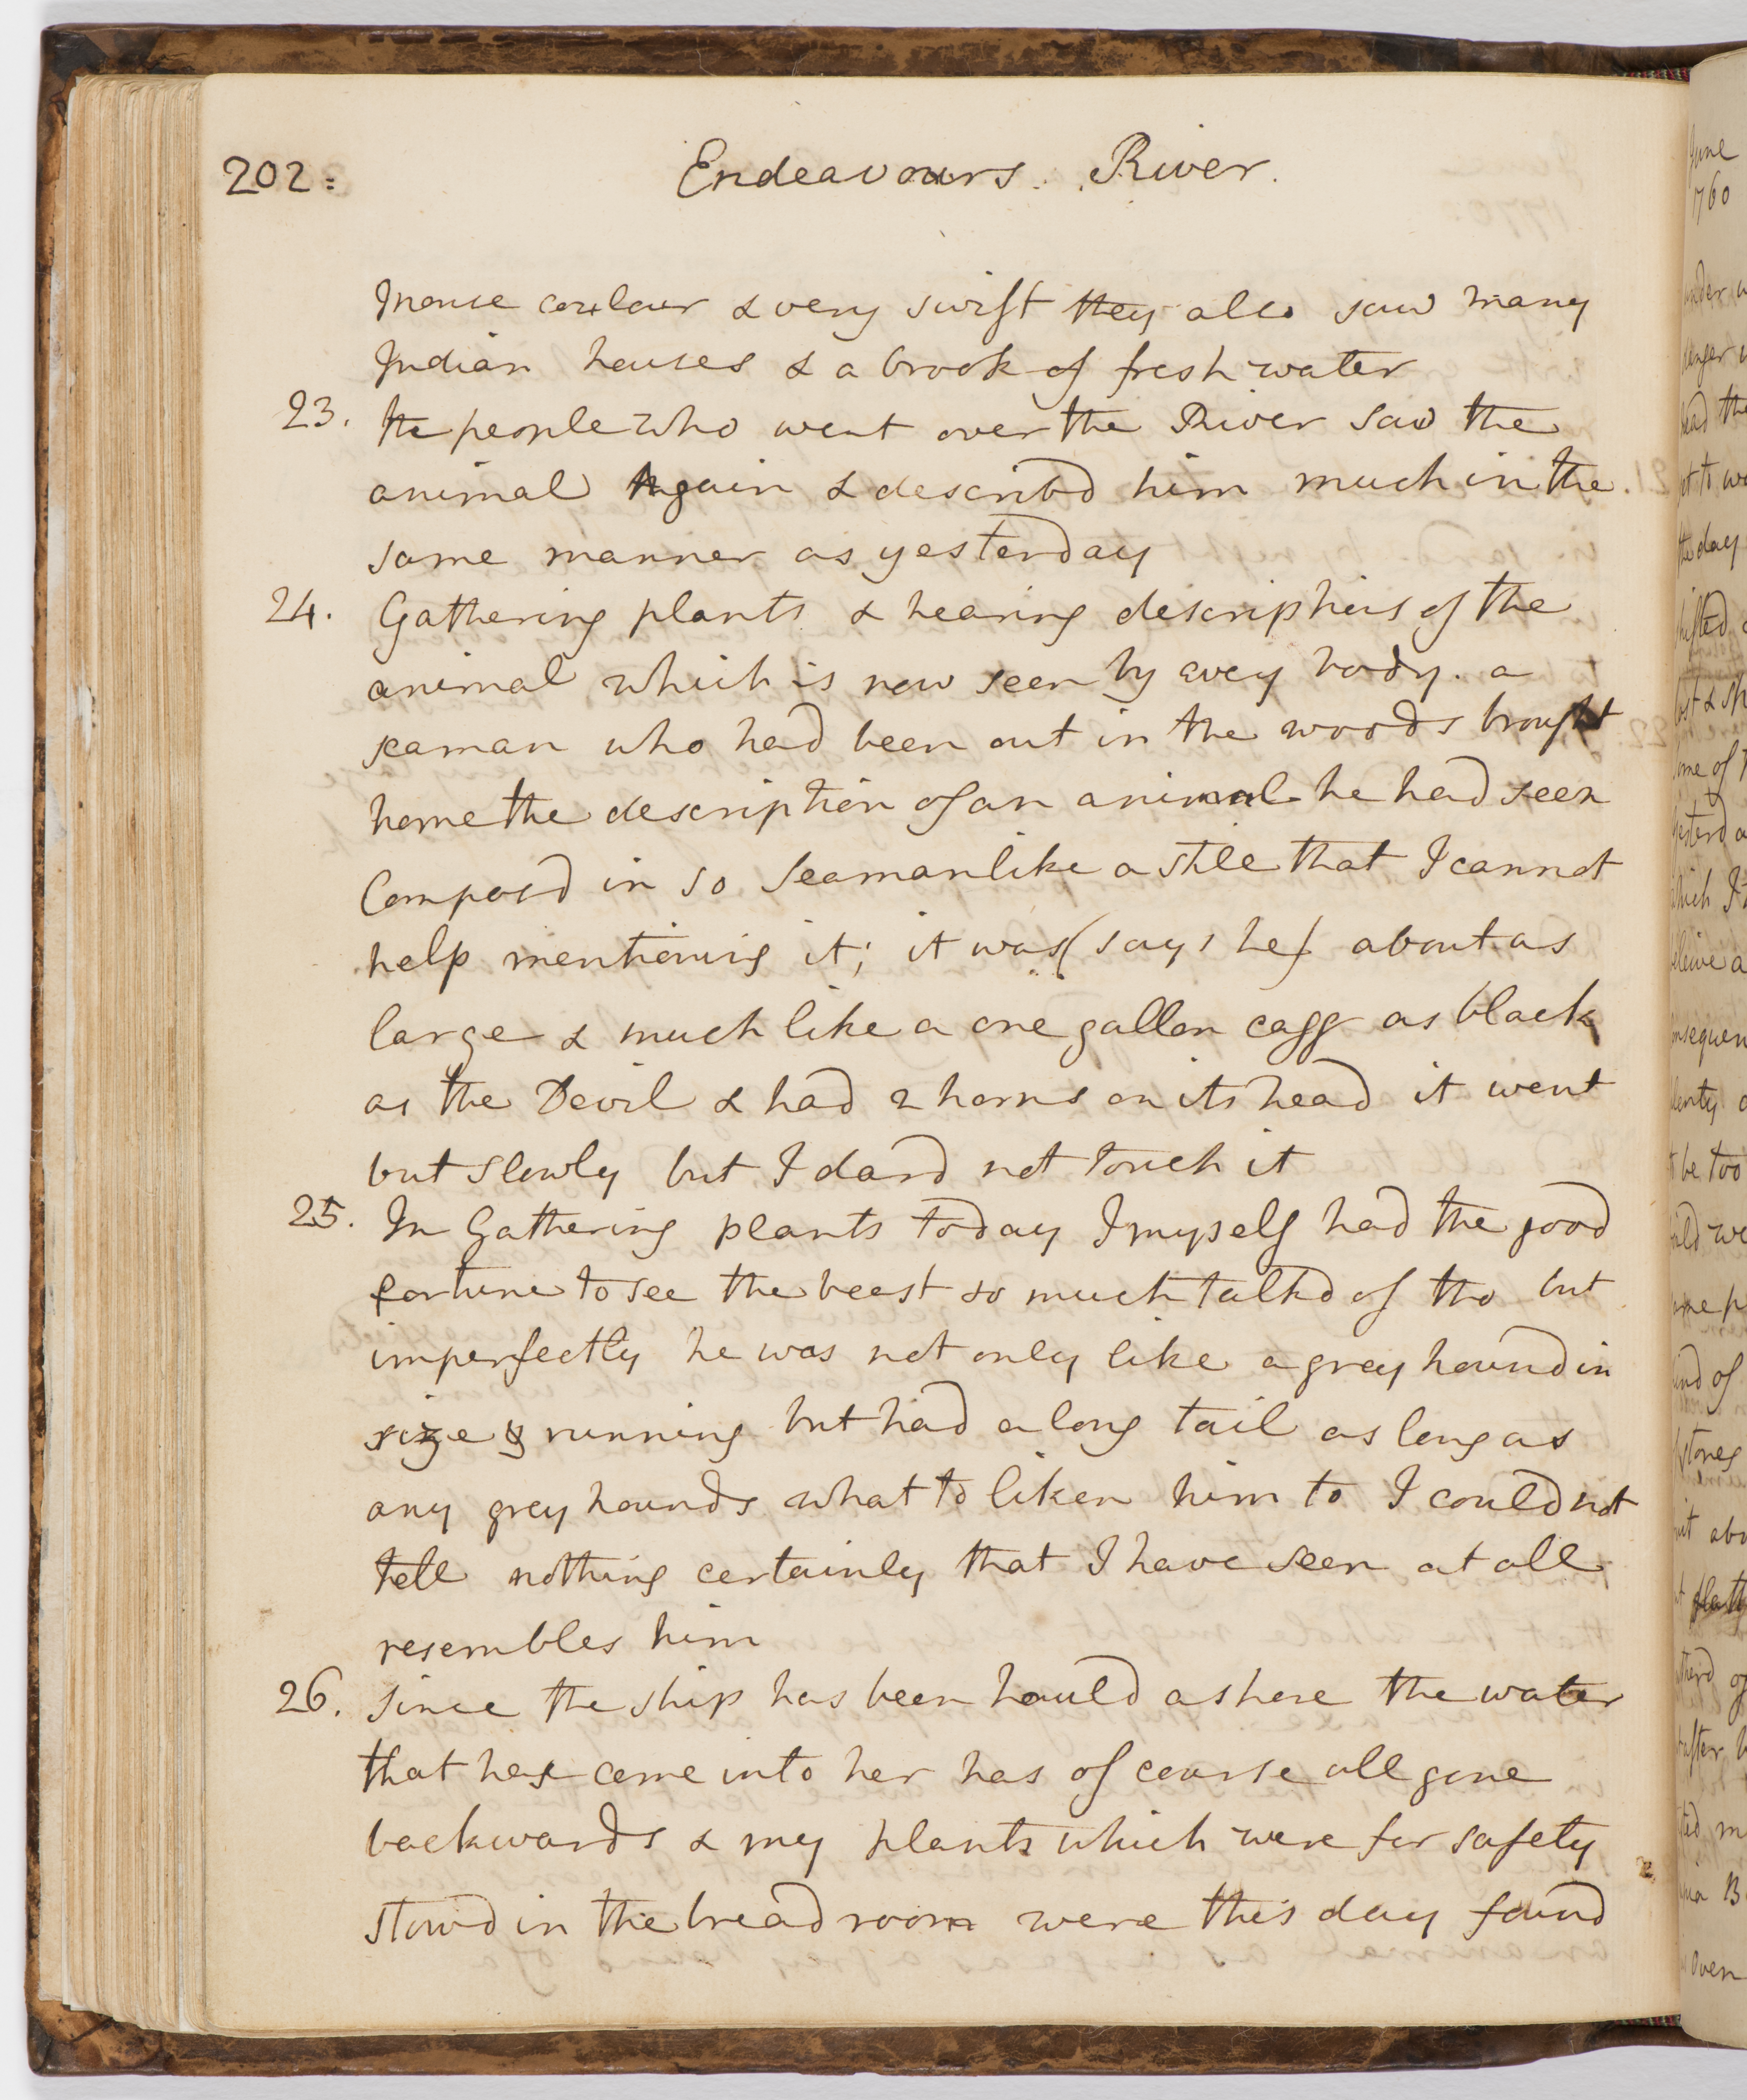 202:
Endeavours River.
mouse coulour & very swift they also saw many
Indian houses & a brook of fresh water
23. the people who went over the River saw the
animal again & describd him much in the
same manner as yesterday
24. Gathering plants & hearing descriptions of the
animal which is now seen by every body. a
seaman who had been out in the woods brought
home the description of an animal he had seen
Composd in so Seamanlike a stile that I cannot
help mentioning it; it was (says he) about as
large & much like a one gallon cagg as black
as the Devil & had 2 horns on its head it went
but Slowly but I dard not touch it
25. In Gathering plants today I myself had the good
fortune to see the beast so much talkd of tho but
imperfectly he was not only like a grey hound in
size & running but had a long tail as long as
any grey hounds what to liken him to I could not
tell nothing certainly that I have seen at all
resembles him
26. Since the ship has been hauld ashore the water
that has come into her has of course all gone
backwards & my plants which were for safety
stowd in the bread room were this day found
June
1760